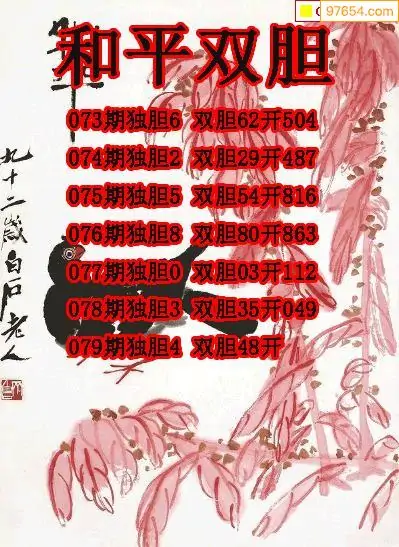 97654.com
和平双胆
073期独胆6 双胆62开504
074期独胆2 双胆29开487
075期独胆5 双胆54开816
076期独胆8 双胆80开863
077期独胆0 双胆03开112
078期独胆3 双胆35开049
079期独胆4 双胆48开
九十二岁白石老人